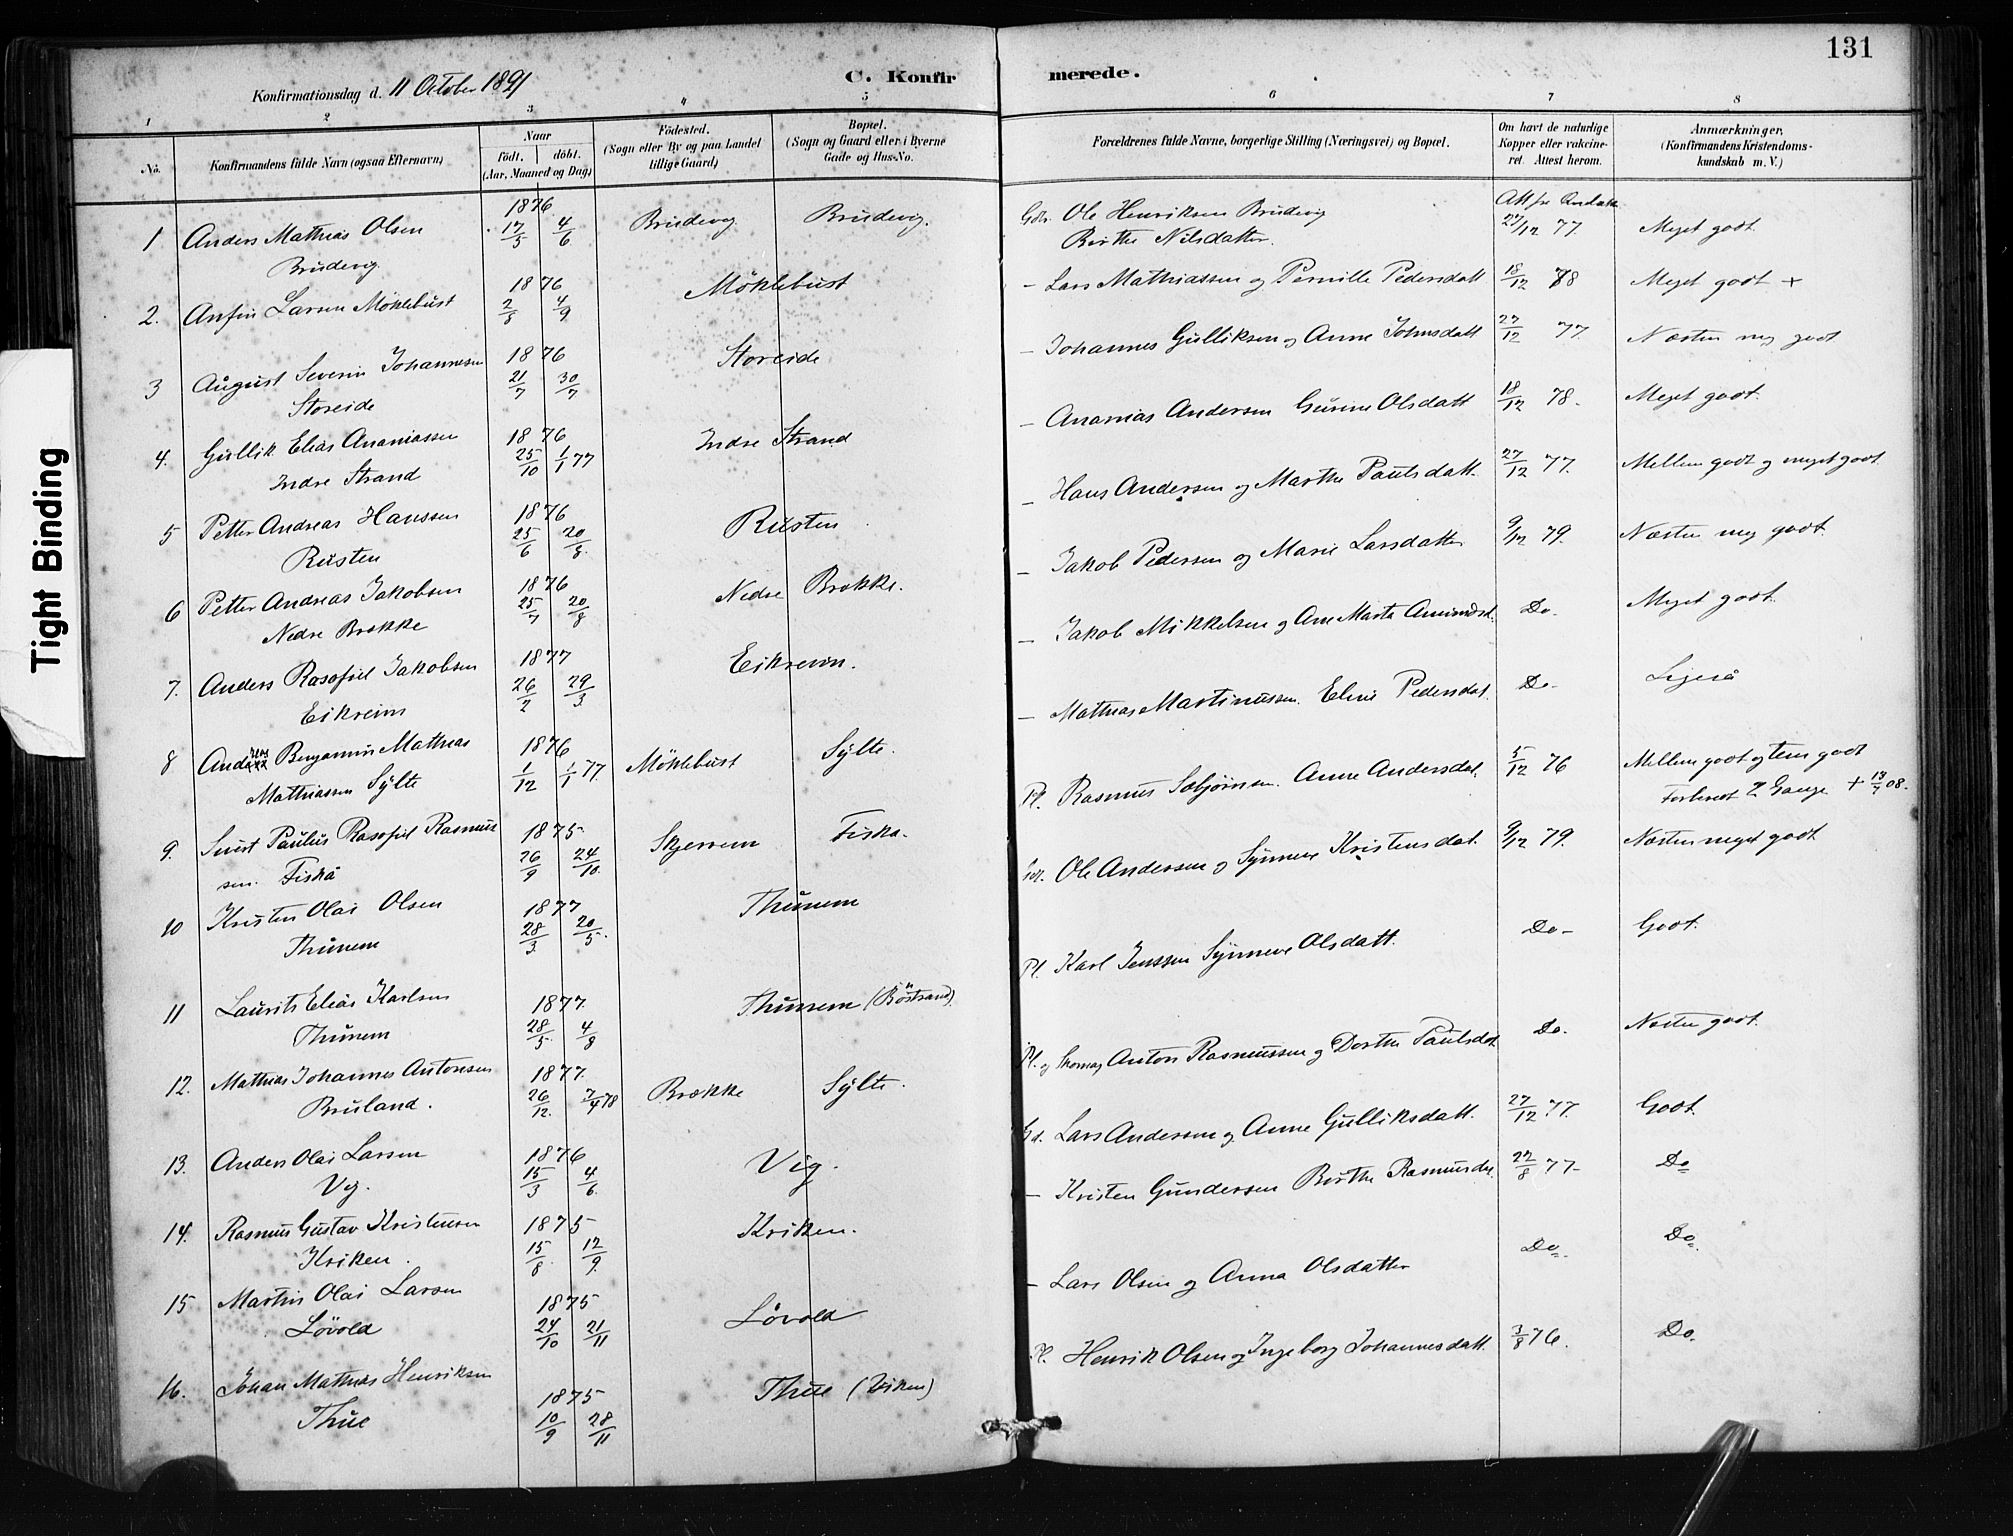 131
Konfirmationsdag d. 11 October 1891
C. Konfirmerede.
1 2 3 4 5 6 7 8
No.
Konfirmandens fulde Navn (ogsaa Efternavn)
Naar
født. døbt.
(Aar, Maaned og Dag)
Fødested.
(Sogn eller By og paa Landet
tillige Gaard)
Bopæl.
(Sogn og Gaard eller i Byerne
Gade og Hus-No.
Forældrenes fulde Navne, borgerlige Stilling (Næringsvei) og Bopæl.
Om havt de naturlige
Kopper eller vakcine-
ret. Attest herom.
Anmærkninger,
(Konfirmandens Kristendoms-
kundskab m. V.)
1 Anders Mathias Olsen Brudevig 1876 17/5 4/6 Brudevig Brudevig. Gbr. Ole Henriksen Brudevig Birthe Nilsdatter. 27/12 77. Meget godt
2. Anfin Larsen Möklebust 1876 2/8 4/9 Möklebust – Lars Mathiassen og Pernille Pedersdatt 18/12 78 Meget godt +
3 August Severin Johannesen Storeide 1876 21/7 30/7 Storeide – Johannes Gulliksen og Anne Johnsdatt 27/12 77. Næsten meg godt
4. Gullik Elias Ananiassen Indre Strand 1876 25/10 1/1 77 Indre Strand – Ananias Andersen Gurine Olsdatt 18/12 78. Meget godt.
5 Petter Andreas Hanssen Rusten 1876 25/6 20/8. Rusten – Hans Andersen og Marthe Paulsdatt. 27/12 77. Mellem godt og meget godt.
6 Petter Andreas Jakobsen Nedre Brække 1876 25/7 20/8 Nedre Brække. – Jakob Pedersen og Marie Larsdatter 9/12 79. Næsten meg godt.
7. Anders Rasofiel Jakobsen Eikreim 1877 26/2 29/3. Eikreim. – Jakob Mikkelsen og Ane Marta Amundsd. Do. Meget godt.
8 Andreas Benjamin Mathias Mathiassen Sylte 1876 1/12 1/1 77 Möklebust Sylte. – Mathias Martinussen. Eline Pedersdat. Do Ligeså
9. Knut Paulus Rasofiel Rasmussen. Fiskå 1875. 26/9 24/10. Skjerrem Fiskå. Pl. Rasmus Sebjörnsen. Anne Andersdat. 5/12 76 Mellem godt og tem godt Forberedt 2 Gange + 13/7 08.
10 Kristen Olai Olsen Thunem 1877 28/3. 20/5. Thunem Ole Andersen og Synneve Kristensdat. 9/12 79. Næsten meget godt
11 Laurits Elias Karlsen Thunem 1877. 28/5. 4/8 Thunem (Böstrand). Pl. Karl Jenssen Synneve Olsdatt. Do– Godt.
12. Mathias Johannes Antonsen Bruland. 1877. 26/12. 7/4 78 Brække Sylte. Pl. Anton Rasmussen og Dorthe Paulsdat Do. Næsten godt.
13. Anders Olai Larsen Vig. 1876 15/3 4/6. Vig. Gd. Lars Andersen og Anne Gulliksdatt. 27/12 77. Godt.
14. Rasmus Gustav Kristensen Kriken. 1875 15/8 12/9. Kriken. – Kristen Gundersen Birthe Rasmusdat. 22/8 77– Do
15 Martin Olai Larsen Lövold 1875 24/10 21/11 Lövold – Lars Olsen og Anna Olsdatter Do. Do.
16. Johan Mathias Henriksen Thue 1875 10/9 28/11 Thue (Viken) Pl. Henrik Olsen og Ingeborg Johannesdatt. 3/8 76. Do.
Tight Binding